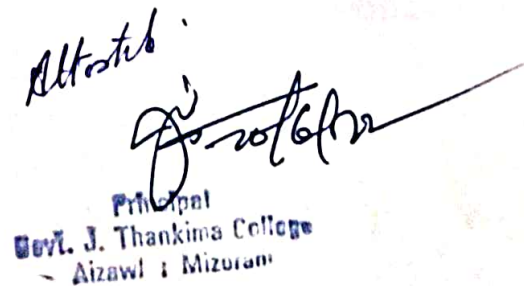 Attested.
20/6/22
Principal
Govt. J. Thankima College
Aizawl : Mizoram